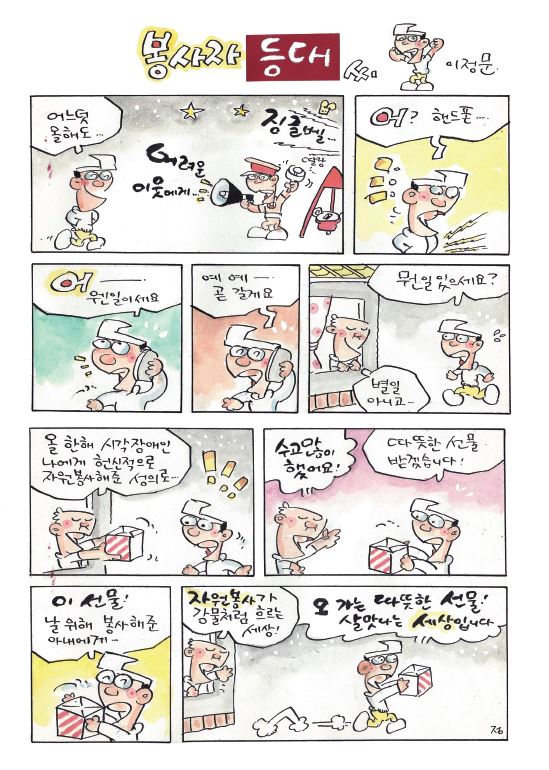 봉사자 등대
이정문
어느덧
올해도…
어려운
이웃에게…
징글벨…
딸랑
어? 핸드폰…
어 ──
웬일이세요
예 예 ─
곧 갈게요
뭔일 있으세요?
별일
아니고…
올 한해 시각장애인
나에게 헌신적으로
자원봉사해준 성의로…
수고많이
했어요!
따뜻한 선물
받겠습니다!
이 선물!
날 위해 봉사해준
아내에게…
자원봉사가
강물처럼 흐르는
세상!
오 가는 따뜻한 선물!
살맛나는 세상입니다